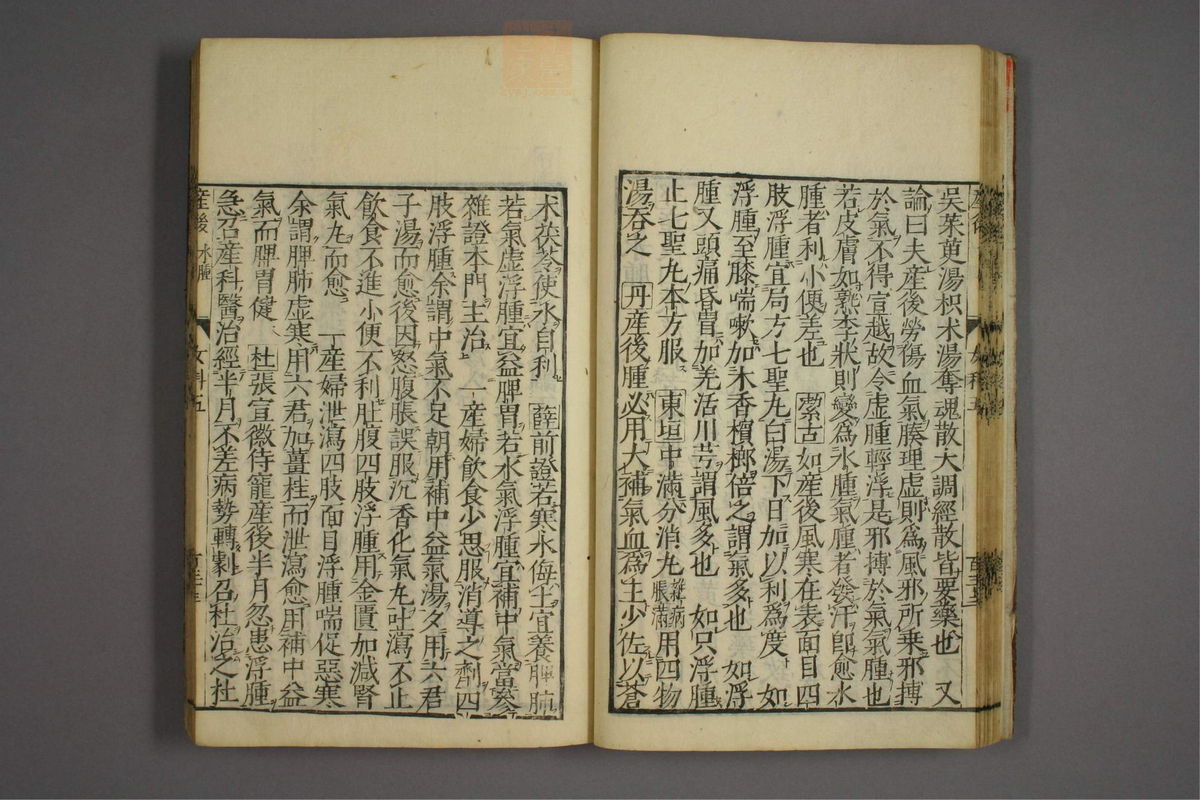 吳茱萸湯枳朮湯奪魂散大調經散皆要藥也 又
論曰夫産後勞傷血氣腠理虛則爲風邪所乘邪搏
於氣不得宣越故令虛腫輕浮是邪搏於氣氣腫也
若皮膚如熟李狀則變爲水腫氣腫者發汗卽愈水
腫者利小便差也 潔古如産後風寒在表面目四
肢浮腫宜局方七聖丸白湯下日加以利爲度 如
浮腫至膝喘嗽加木香檳榔倍之謂氣多也 如浮
腫又頭痛昏冒加羌活川芎謂風多也 如只浮腫
止七聖丸本方服 東垣中滿分消丸雜病脹滿用四物
湯吞之 丹産後腫必用大補氣血爲主少佐以蒼
朮茯苓使水自利 薛前證若寒水侮土宜養脾肺
若氣虛浮腫宜益脾胃若水氣浮腫宜補中氣當參
雜證本門主治 一産婦飮食少思服消導之劑四
肢浮腫余謂中氣不足朝用補中益氣湯夕用六君
子湯而愈後因怒腹脹誤服沉香化氣丸吐瀉不止
飮食不進小便不利肚腹四肢浮腫用金匱加減腎
氣丸而愈 一産婦泄瀉四肢面目浮腫喘促惡寒
余謂脾肺虛寒用六君加薑桂而泄瀉愈用補中益
氣而脾胃健 杜張宣徽侍寵産後半月忽患浮腫
急召産科醫治經半月不差病勢轉劇召杜治之杜
産後 水腫 女科五